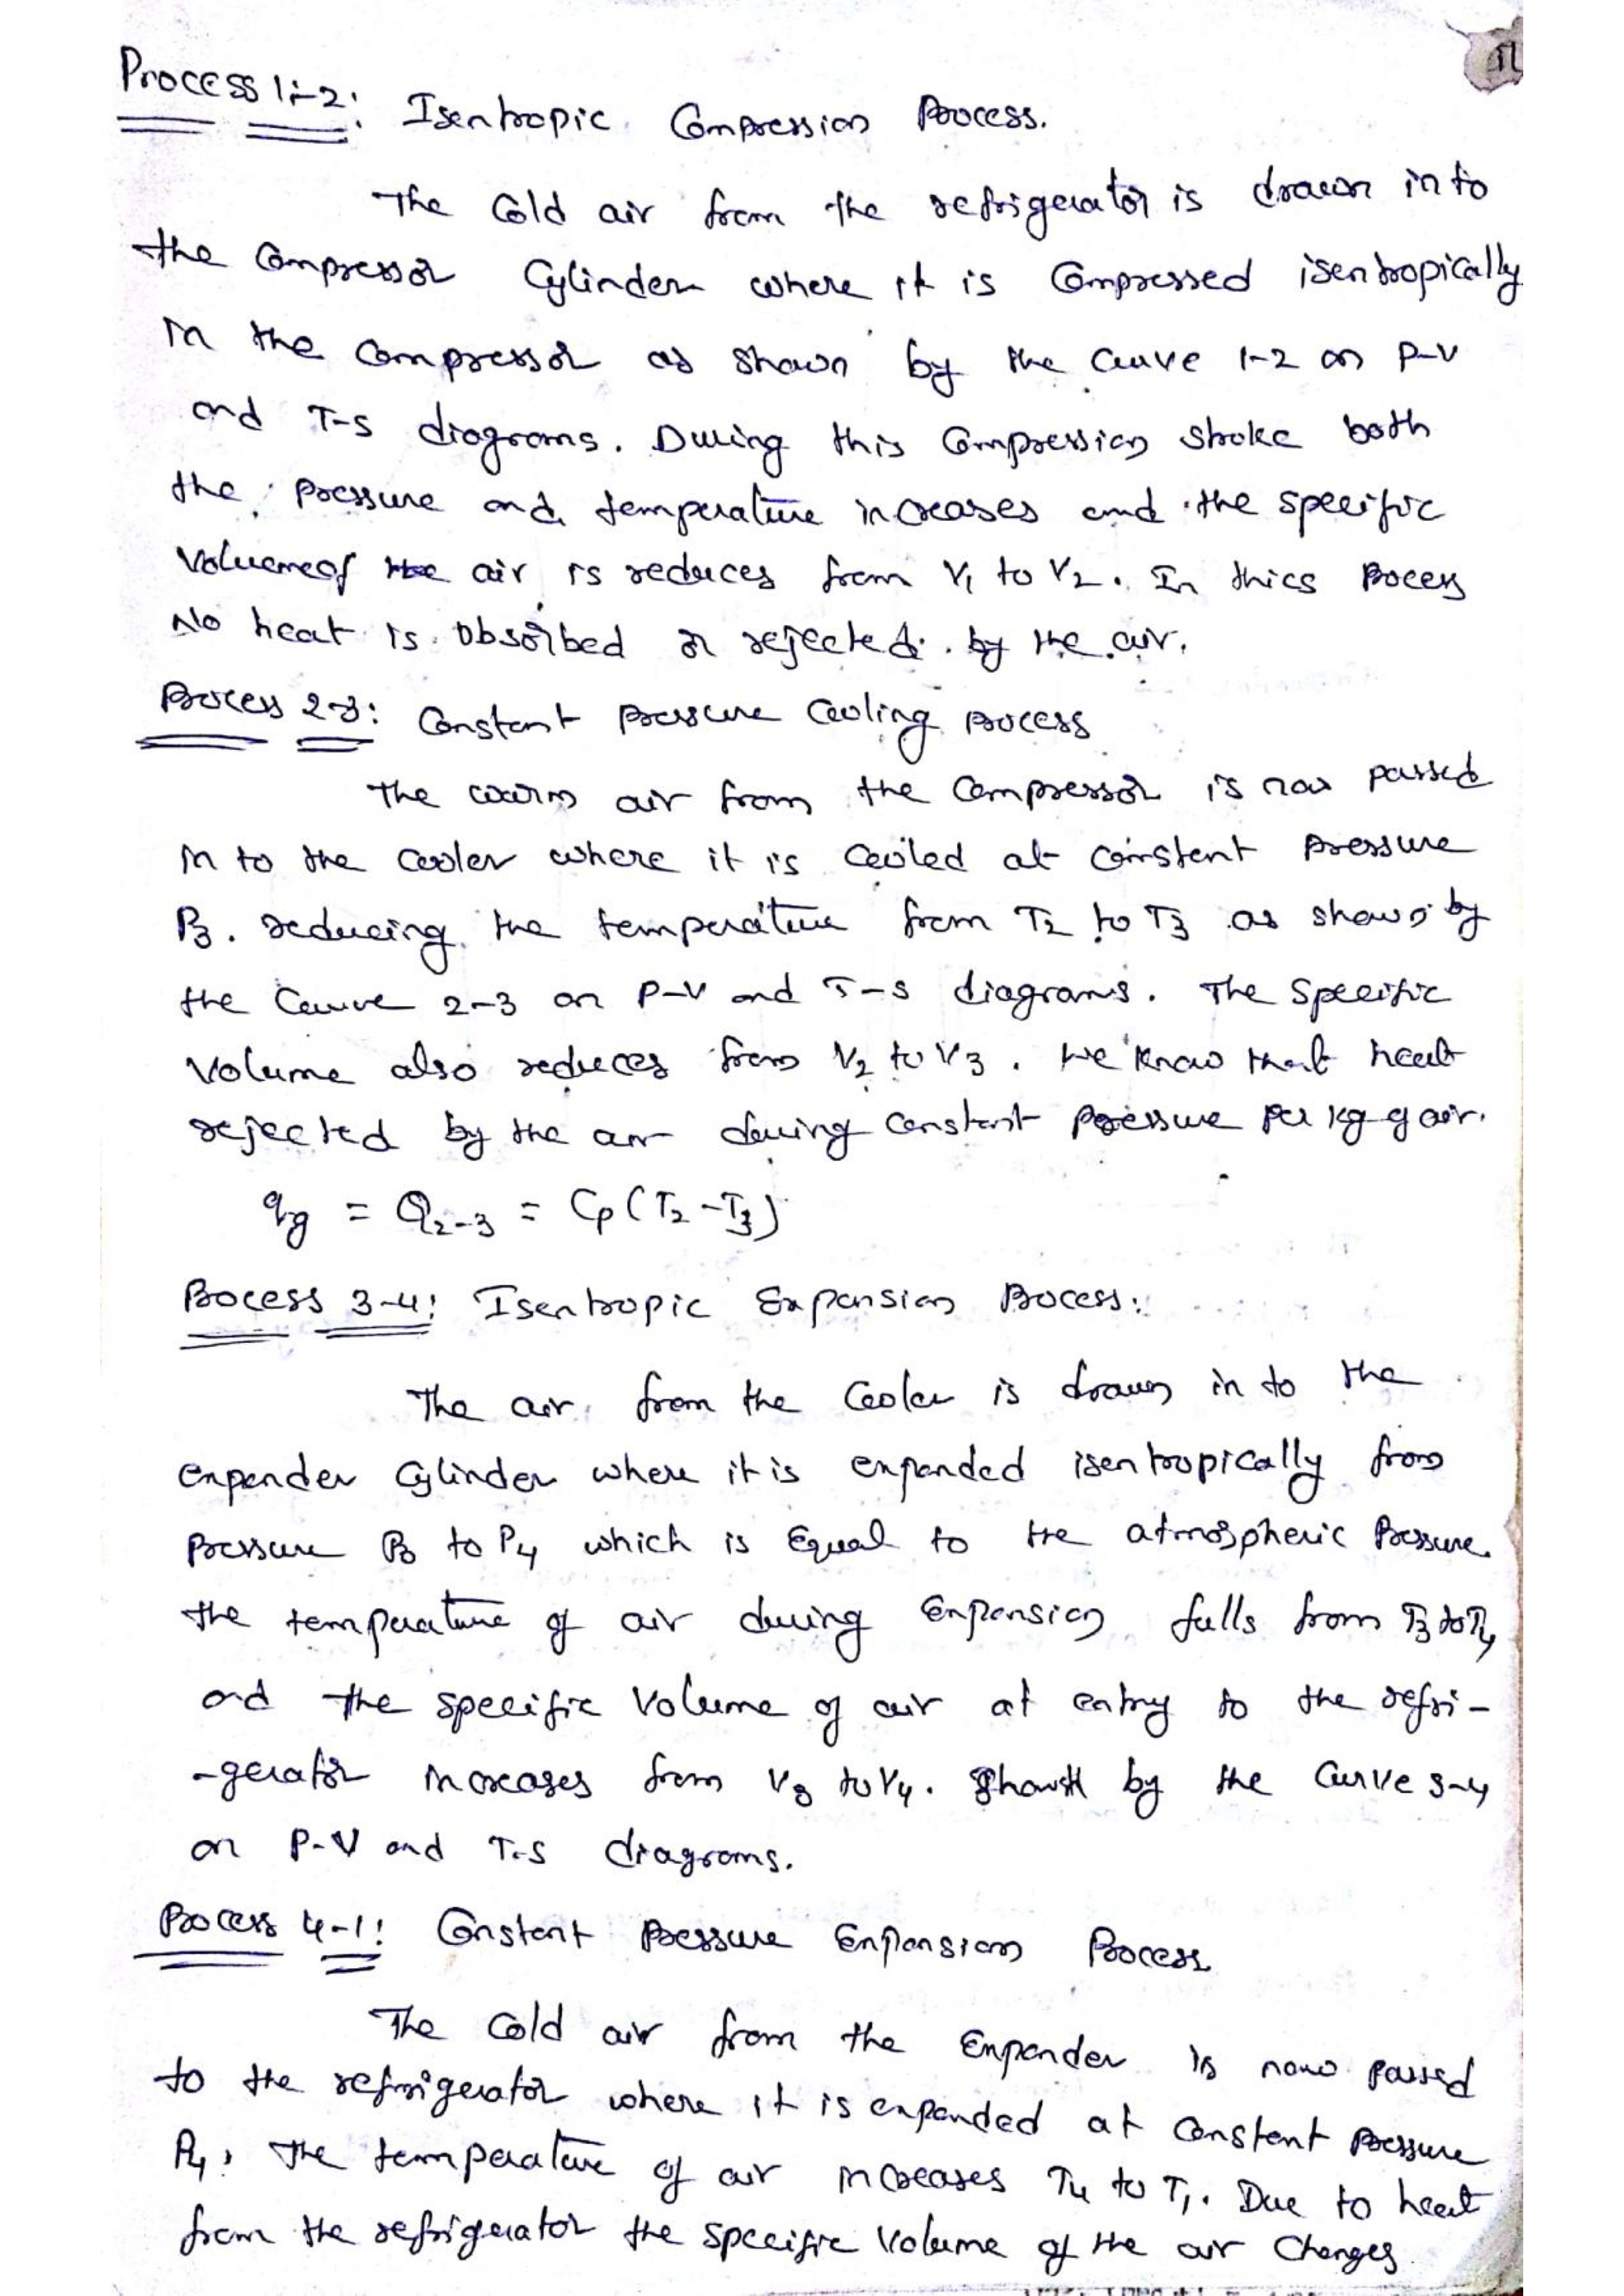 Process 1-2: Isentropic Compression Process.
The Cold air from the refrigerator is drawn in to
the compressor Cylinder where it is Compressed isentropically
in the compressor as shown by the curve 1-2 on P-V
and T-S diagrams. During this Compression stroke both
the pressure and temperature increases and the specific
Volumeof the air is reduces from V1 to V2. In thics Process
No heat is Obsorbed or rejected by the air.
Process 2-3: Constant pressure Cooling process
The warm air from the compressor is now passed
in to the cooler where it is cooled at constent pressure
P3. reducing the temperature from T2 to T3 as shown by
the Curve 2-3 on P-V and T-S diagrams. The specific
Volume also reduces from V2 to V3. We know that heat
rejected by the air during constant pressure per kg of air.
= Q2-3 = Cp(T2-T3)
Process 3-4: Isentropic Expansion Process:
The air from the Cooler is drawn in to the
expander Cylinder where it is expanded isentropically from
pressure P3 to P4 which is Equal to the atmospheric Pressure.
the temperature of air during Expansion falls from T3 to T4
and the specific Volume of air at entry to the refri-
-gerator increases from V3 to V4. Shown by the Curve 3-4
on P-V and T-S diagrams.
Process 4-1: Constant Pressure Expansion Process
The Cold air from the Expander is now passed
to the refrigerator where it is expanded at constent pressure
P4, The temperature of air increases T4 to T1. Due to heat
from the refrigerator the specific Volume of the air Changes